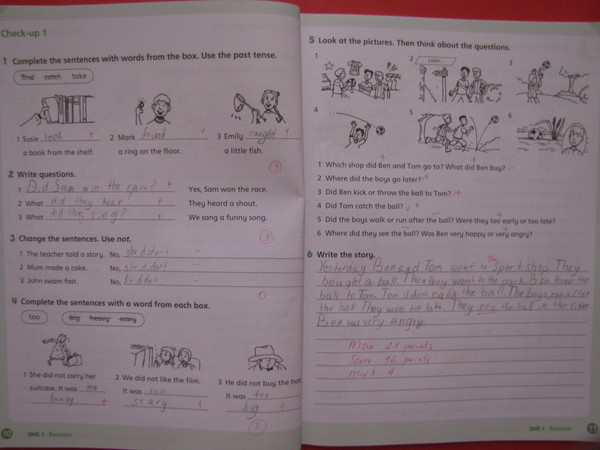 Check-up 1
1 Complete the sentences with words from the box. Use the past tense.
find catch take
1 Susie took +
a book from the shelf.
2 Mark found +
a ring on the floor.
3 Emily caught +
a little fish.
3
2 Write questions.
1 Did Sam win the race? + Yes, Sam won the race.
2 What did they hear? + They heard a shout.
3 What sing? + We sang a funny song.
3
3 Change the sentences. Use not.
1 The teacher told a story. No, she didn't –
2 Mum made a cake. No, she didn't –
3 John swam fast. No, he didn't –
4 Complete the sentences with a word from each box.
too
big heavy scary
1 She did not carry her
suitcase. It was too
heavy +
2 We did not like the film.
It was too
scary +
3 He did not buy the hat.
It was too
big +
3
10 Unit 1 Revision
5 Look at the pictures. Then think about the questions.
1 2 Later... 3
4 5 6
1 Which shop did Ben and Tom go to? What did Ben buy?
2 Where did the boys go later? +
3 Did Ben kick or throw the ball to Tom? +
4 Did Tom catch the ball? +
5 Did the boys walk or run after the ball? Were they too early or too late?
6 Where did they see the ball? Was Ben very happy or very angry?
6 Write the story.
Yesterday Ben and Tom went to sport shop. They
bought a ball. Then they went to the park. Ben threw the
ball to Tom. Tom didn't catch the ball. The boys run after
the ball. They were too late. They see the ball in the river
Ben was very angry.
Max 21 points
Score 16 points
Mark 4
Unit 1 Revision 11